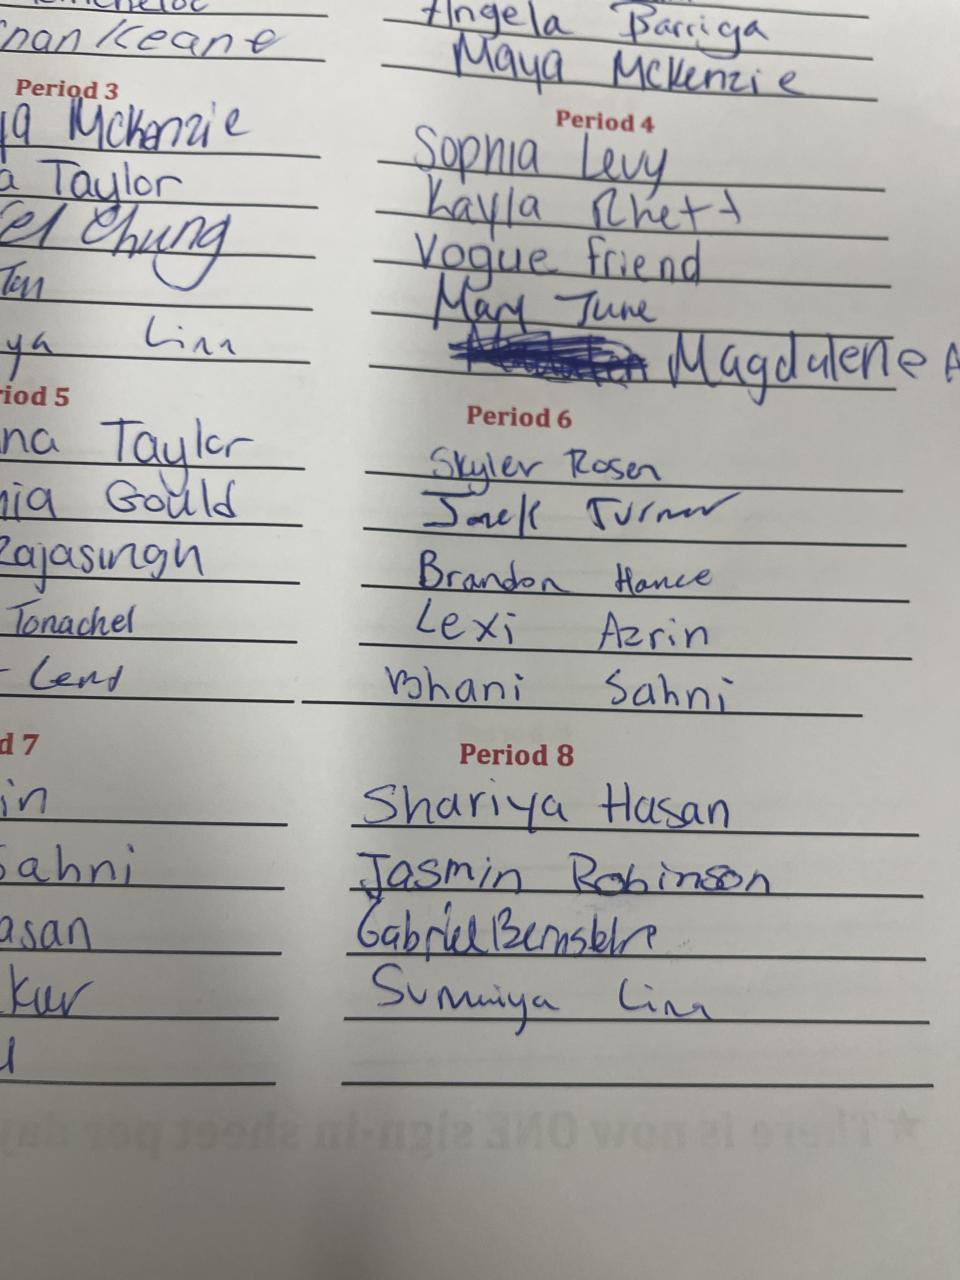 Keane
Angela Barriga
Maya McKenzie
Period 3
McKenzie
Taylor
Chung
Tan
Period 4
Sophia Levy
Kayla Rhett
Vogue friend
Mary June
Magdalene A
iod 5
na Taylor
nia Gould
Rajasingh
Tonachel
Period 6
Skyler Rosen
Jack Turner
Brandon Hance
Lexi Azrin
Bhani Sahni
d 7
in
Sahni
asan
kur
Period 8
Shariya Hasan
Jasmin Robinson
Gabriel
Sumaiya
★There is now ONE sign-in sheet per day